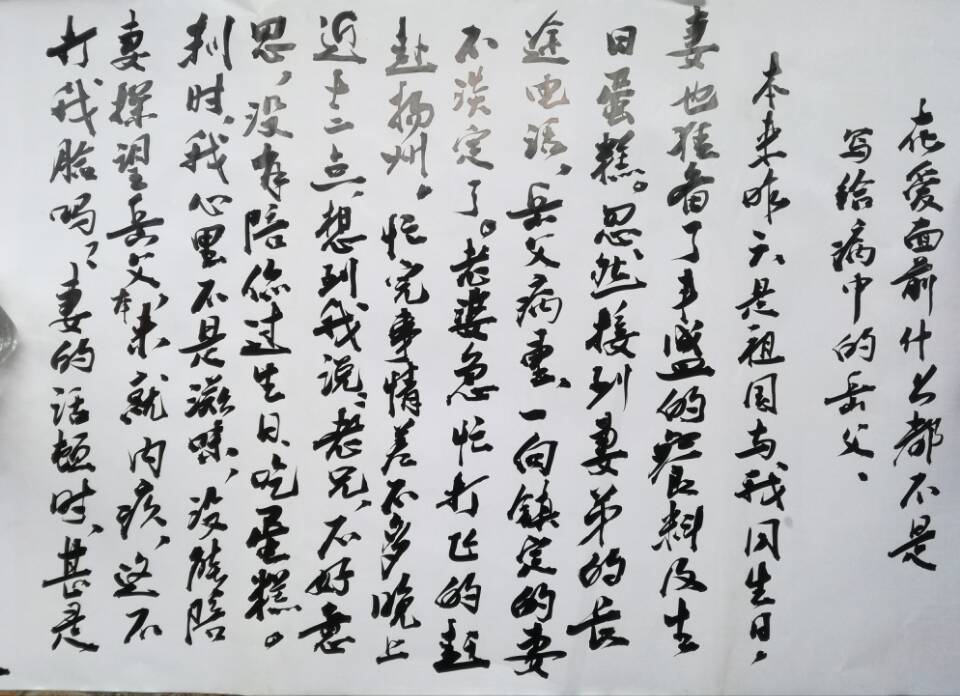 在爱面前什么都不是
写给病中的岳父、
本来昨天是祖国与我同生日,
妻也准备了丰盛的餐料及生
日蛋糕。忽然接到妻弟的长
途电话,岳父病重、一向镇定的妻
不淡定了。老婆急忙打飞的赶
赴扬州。忙完事情差不多晚上
近十二点,想到我说:老兄,不好意
思,没有陪你过生日、吃蛋糕。
刹时,我心里不是滋味,没能陪
妻探望岳父,本来就内疚,这不
打我脸吗,妻的话顿时、甚是